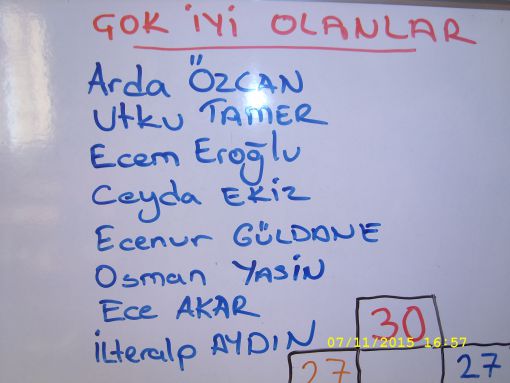 ÇOK İYİ OLANLAR
Arda ÖZCAN
Utku TAMER
Ecem Eroğlu
Ceyda EKİZ
Ecenur GÜLDANE
Osman YASİN
Ece AKAR
İLteralp AYDIN
30
07/11/2015 16:57
27
27